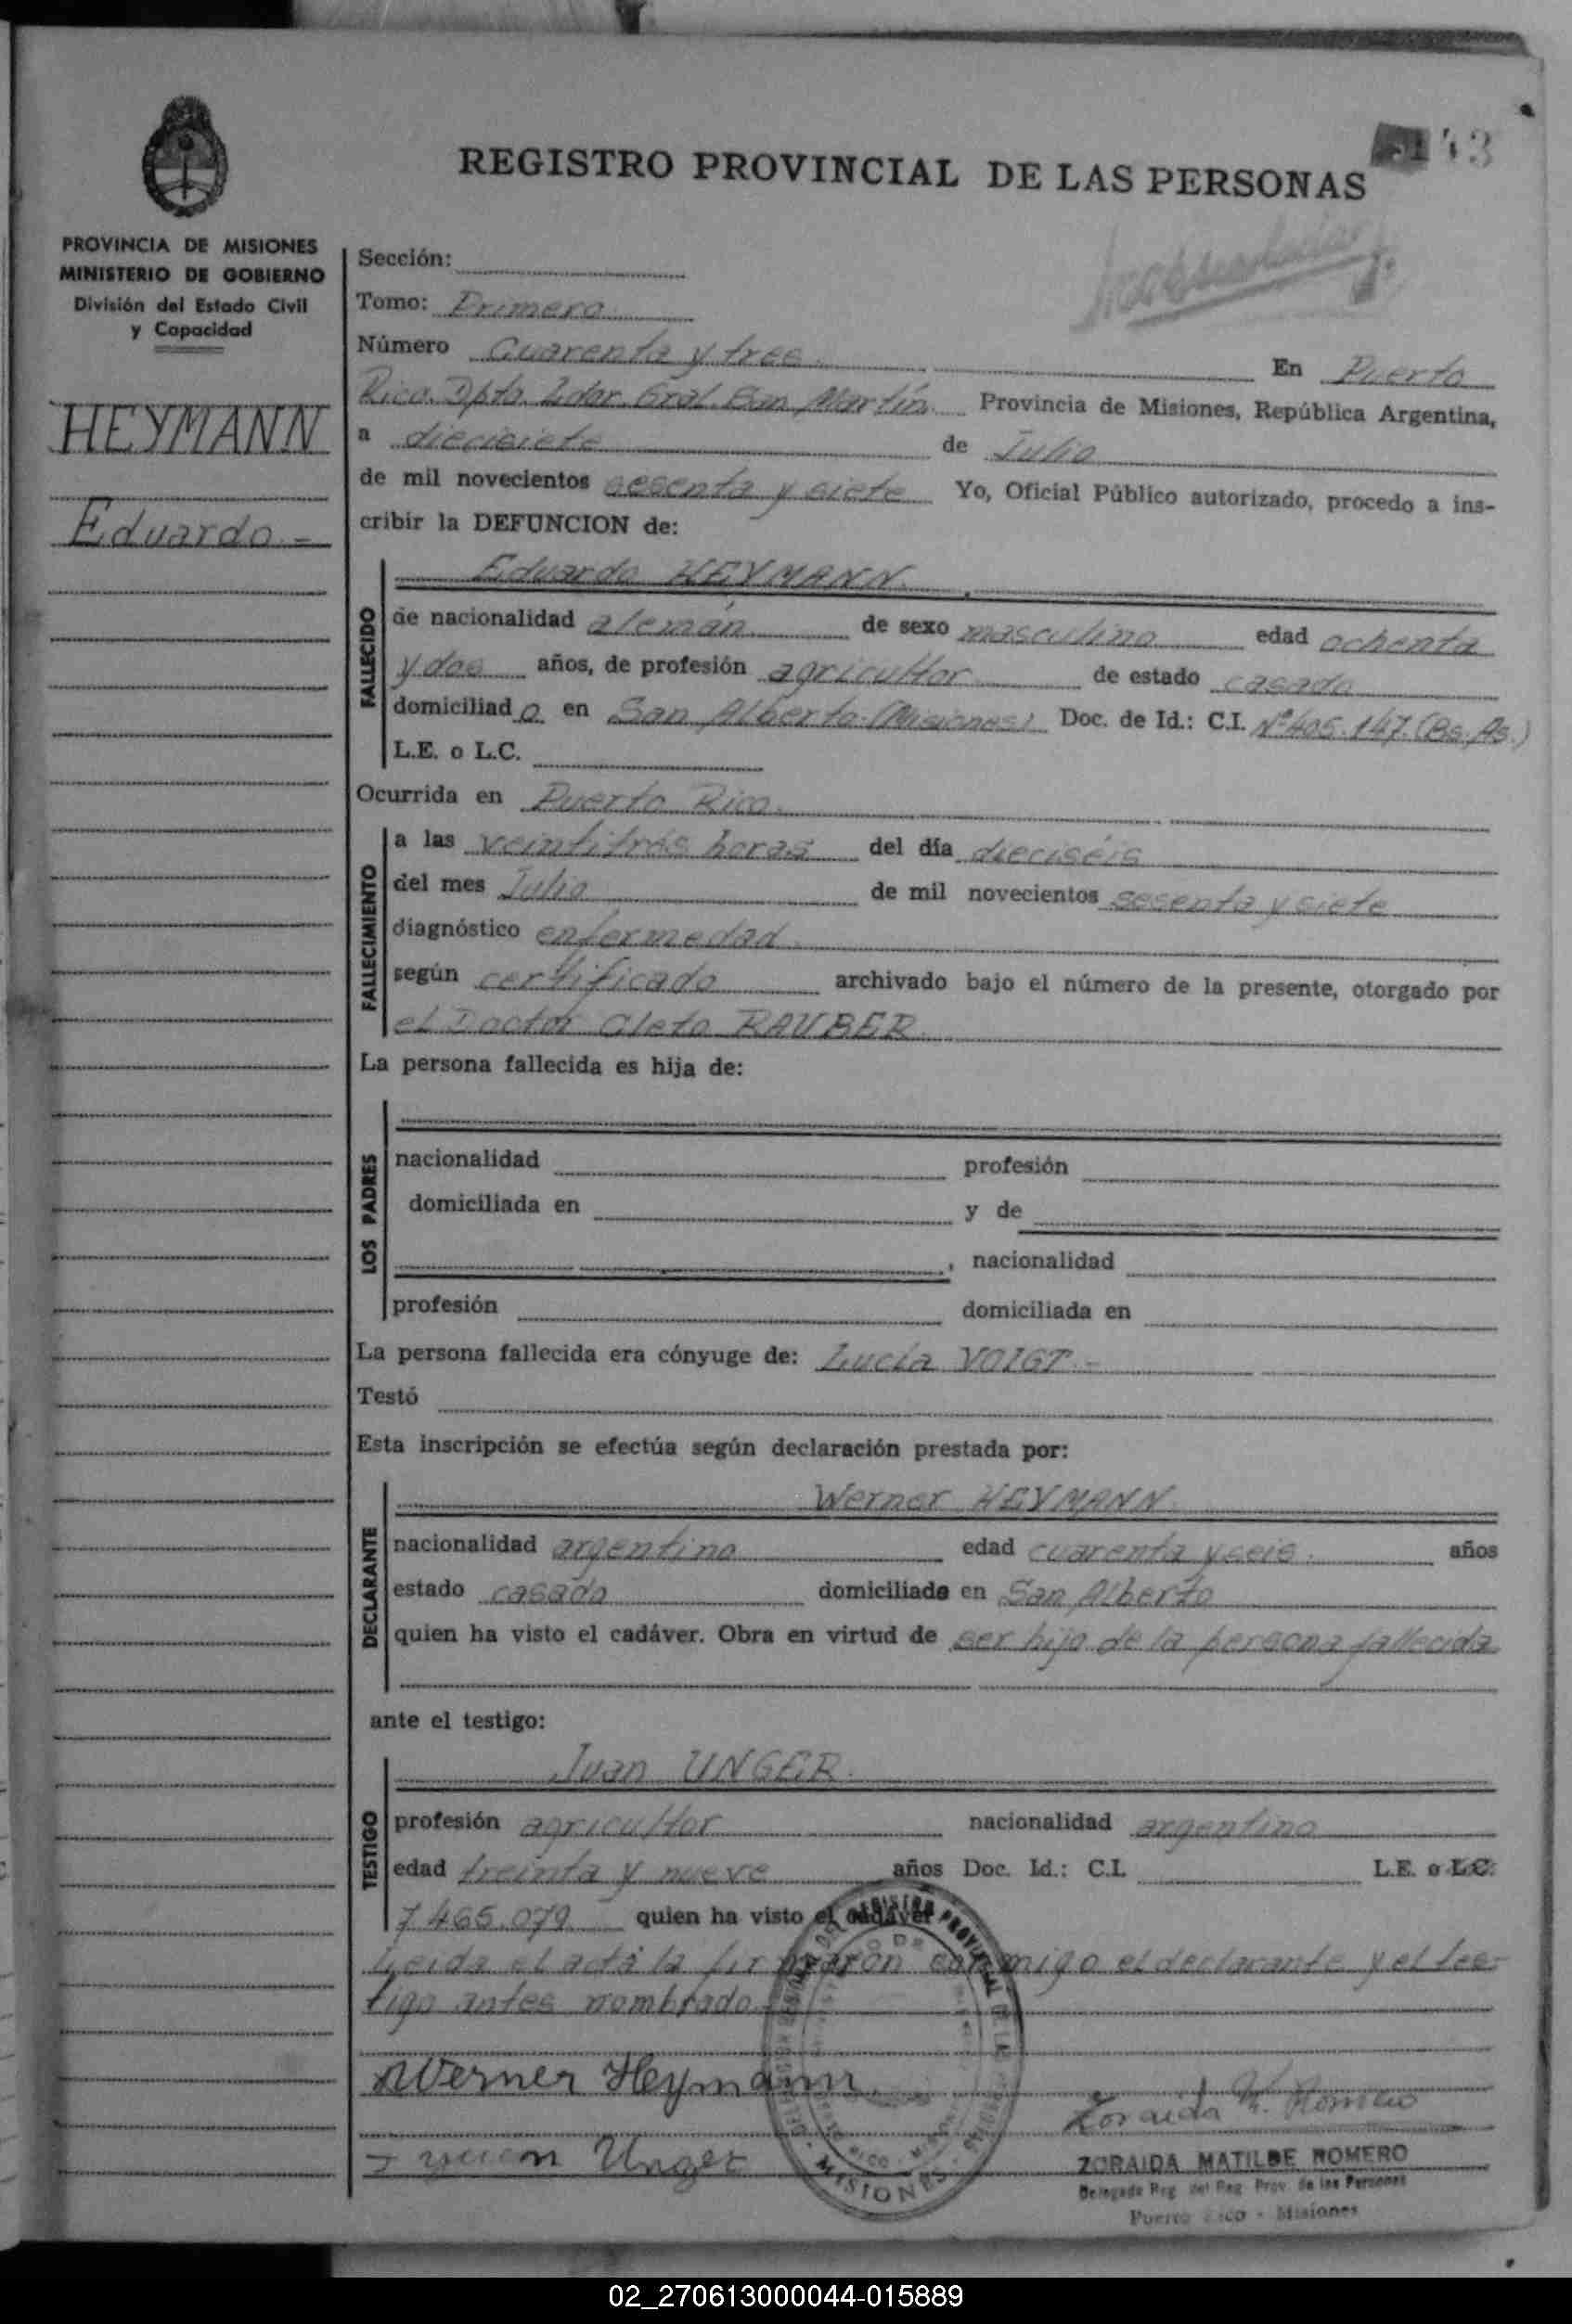 43
REGISTRO PROVINCIAL DE LAS PERSONAS
PROVINCIA DE MISIONES
MINISTERIO DE GOBIERNO
División del Estado Civil
y Capacidad
HEYMANN
Eduardo.-
Sección:
Tomo: Primero
Número Cuarenta y tres. En Puerto
Rico. Dpto. Ldor. Gral. San Martín. Provincia de Misiones, República Argentina,
a diecisiete de Julio
de mil novecientos sesenta y siete Yo, Oficial Público autorizado, procedo a ins-
cribir la DEFUNCION de:
FALLECIDO
Eduardo HEYMANN.
de nacionalidad alemán de sexo masculino edad ochenta
y dos años, de profesión agricultor de estado casado
domiciliado en San Alberto (Misiones) Doc. de Id.: C.I. Nº 405.147. (Bs. As.)
L.E. o L.C.
Ocurrida en Puerto Rico.
FALLECIMIENTO
a las veintitrés horas del día dieciséis
del mes Julio de mil novecientos sesenta y siete
diagnóstico enfermedad.
según certificado archivado bajo el número de la presente, otorgado por
el Doctor Cleto RAUBER.
La persona fallecida es hija de:
LOS PADRES
nacionalidad profesión
domiciliada en y de
, nacionalidad
profesión domiciliada en
La persona fallecida era cónyuge de: Lucía VOIGT.-
Testó
Esta inscripción se efectúa según declaración prestada por:
DECLARANTE
Werner HEYMANN
nacionalidad argentino edad cuarenta y seis. años
estado casado domiciliado en San Alberto
quien ha visto el cadáver. Obra en virtud de ser hijo de la persona fallecida
ante el testigo:
TESTIGO
Juan UNGER.
profesión agricultor nacionalidad argentino
edad treinta y nueve años Doc. Id.: C.I. L.E. o L.C.
7.465.079 quien ha visto el cadáver
Leida el acta la firmaron conmigo el declarante y el tes-
tigo antes nombrado.
Werner Heymann
Zoraida M. Romero
Unger
ZORAIDA MATILDE ROMERO
Delegada Reg. del Reg. Prov. de las Personas
Puerto Rico - Misiones
MISIONES
02_270613000044-015889